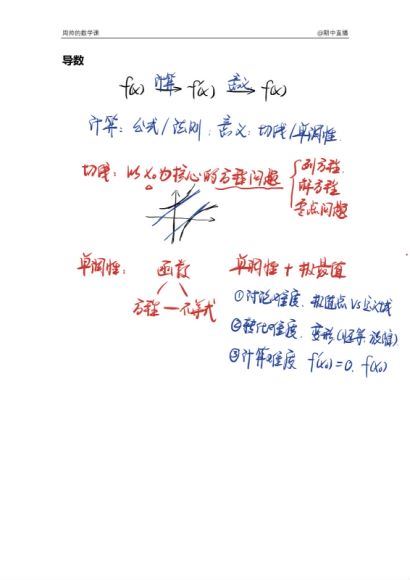 周帅的数学课 @期中直播
导数
f(x) 计算→ f'(x) 意义→ f(x)
计算：公式/法则；意义：切线/单调性.
切线：以x₀为核心的方程问题 { 列方程.
解方程
零点问题
单调性： 函数 单调性+极最值
方程—不等式
①讨论难度. 极值点 VS 定义域
②转化难度. 变形(恒等 放缩)
③计算难度 f'(x₀)=0. f(x₀)